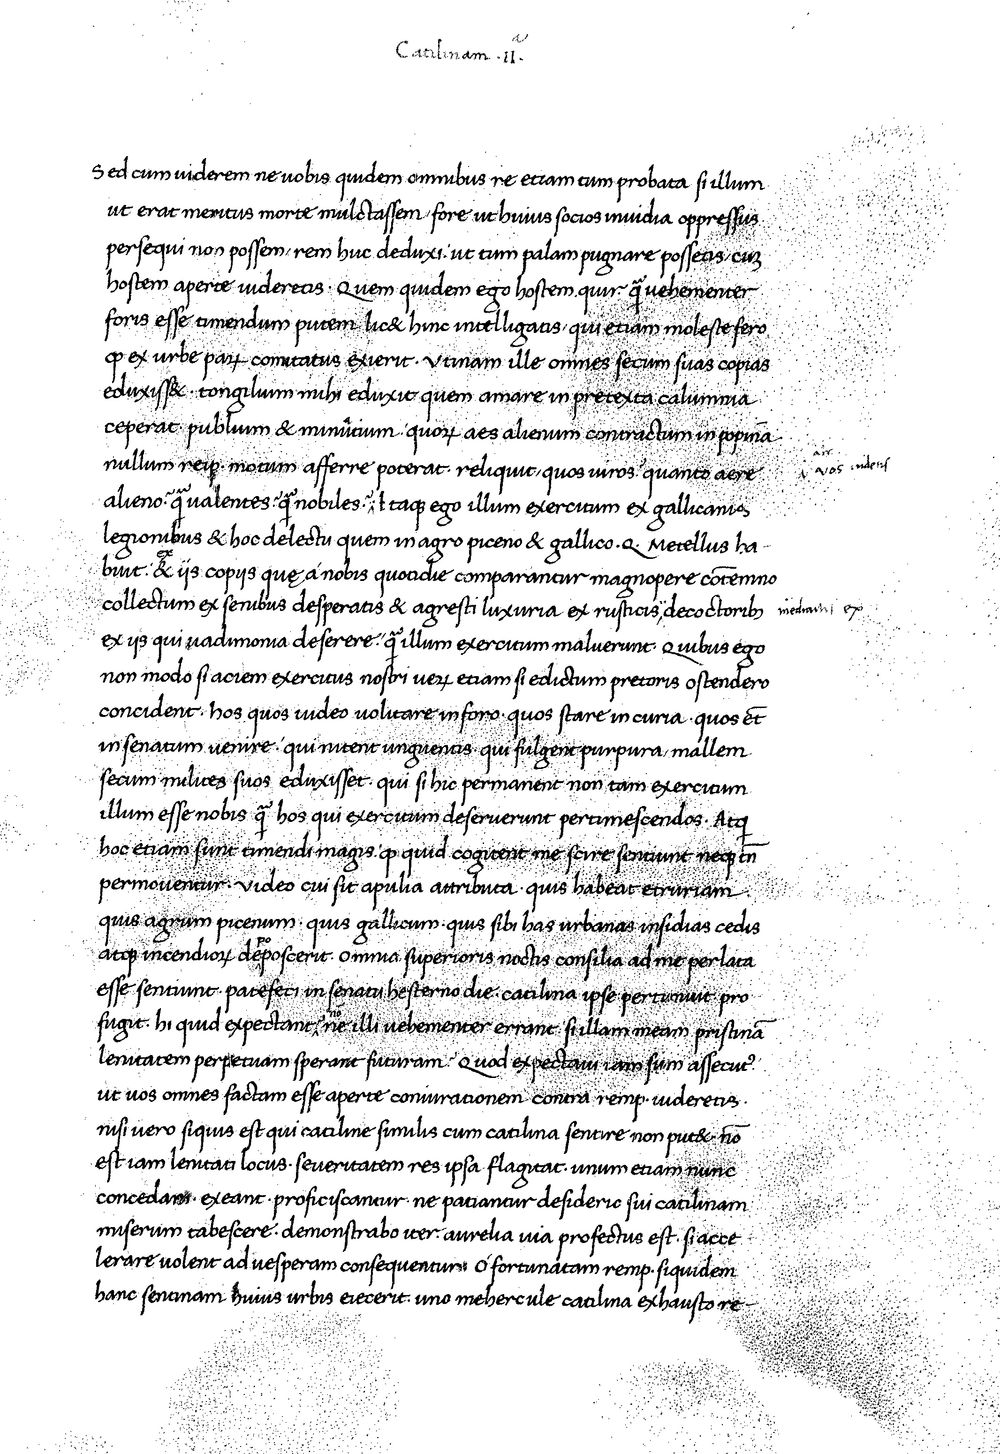 Catilinam · II ͣ ·
Sed cum uiderem ne uobis quidem omnibus re etiam tum probata si illum
ut erat meritus morte mulctassem / fore ut huius socios inuidia oppressus
persequi non possem / rem huc deduxi · ut tum palam pugnare possetis / cuꝫ
hostem aperte uideretis · Quem quidem ego hostem quir̄ · q̄ uehementer
foris esse timendum putem lic& hinc intelligatis / qui etiam moleste fero
ꝙ ex urbe paꝝ comitatus exierit · Vtinam ille omnes secum suas copias
eduxiss& · tongilium mihi eduxit quem amare in pretexta calumnia
ceperat · publium & minutium · quoꝝ aes alienum contractum in popina
nullum reip̄ · motum afferre poterat · reliquit / quos uiros · quanto aere
alieno · q̄ ualentes · q̄ nobiles · Itaqꝫ ego illum exercitum ex gallicanis
uos uidetis
legionibus & hoc delectu quem in agro piceno & gallico · Q · Metellus ha-
buit · & iis copijs quę a nobis quotidie comparantur magnopere cōtemno
collectum ex senibus desperatis & agresti luxuria ex rusticis decoctoribꝫ
mendicis ex
ex iis qui uadimonia deserere · q̄ illum exercitum maluerunt · Quibus ego
non modo si aciem exercitus nostri ueꝝ etiam si edictum pretoris ostendero
concident · hos quos uideo uolitare in foro · quos stare in curia · quos ēt
in senatum uenire · qui nitent unguentis · qui fulgent purpura / mallem
secum milites suos eduxisset · qui si hic permanent non tam exercitum
illum esse nobis q̄ hos qui exercitum deseruerunt pertimescendos · Atqꝫ
hoc etiam sunt timendi magis ꝙ quid cogitent me scire sentiunt neqꝫ tn̄
permouentur · Video cui sit apulia attributa · quis habeat etruriam
quis agrum picenum · quis gallicum · quis sibi has urbanas insidias cedis
atqꝫ incendioꝝ depoposcerit · Omnia superioris noctis consilia ad me perlata
esse sentiunt · patefeci in senatu hesterno die · catilina ipse pertimuit pro
fugit · hi quid expectant / ne illi uehementer errant · si illam meam pristinā
lenitatem perpetuam sperant futuram · Quod expectaui iam sum assecutꝰ
ut uos omnes factam esse aperte coniurationem contra remp · uideretis ·
nisi uero siquis est qui catiline similis cum catilina sentire non put& · nō
est iam lenitati locus · seueritatem res ipsa flagitat · unum etiam nunc
concedam · exeant · proficiscantur · ne patiantur desiderio sui catilinam
miserum tabescere · demonstrabo iter · aurelia uia profectus est · si acce
lerare uolent ad uesperam consequentur · O fortunatam remp · siquidem
hanc sentinam huius urbis eiecerit · uno mehercule catilina exhausto re-